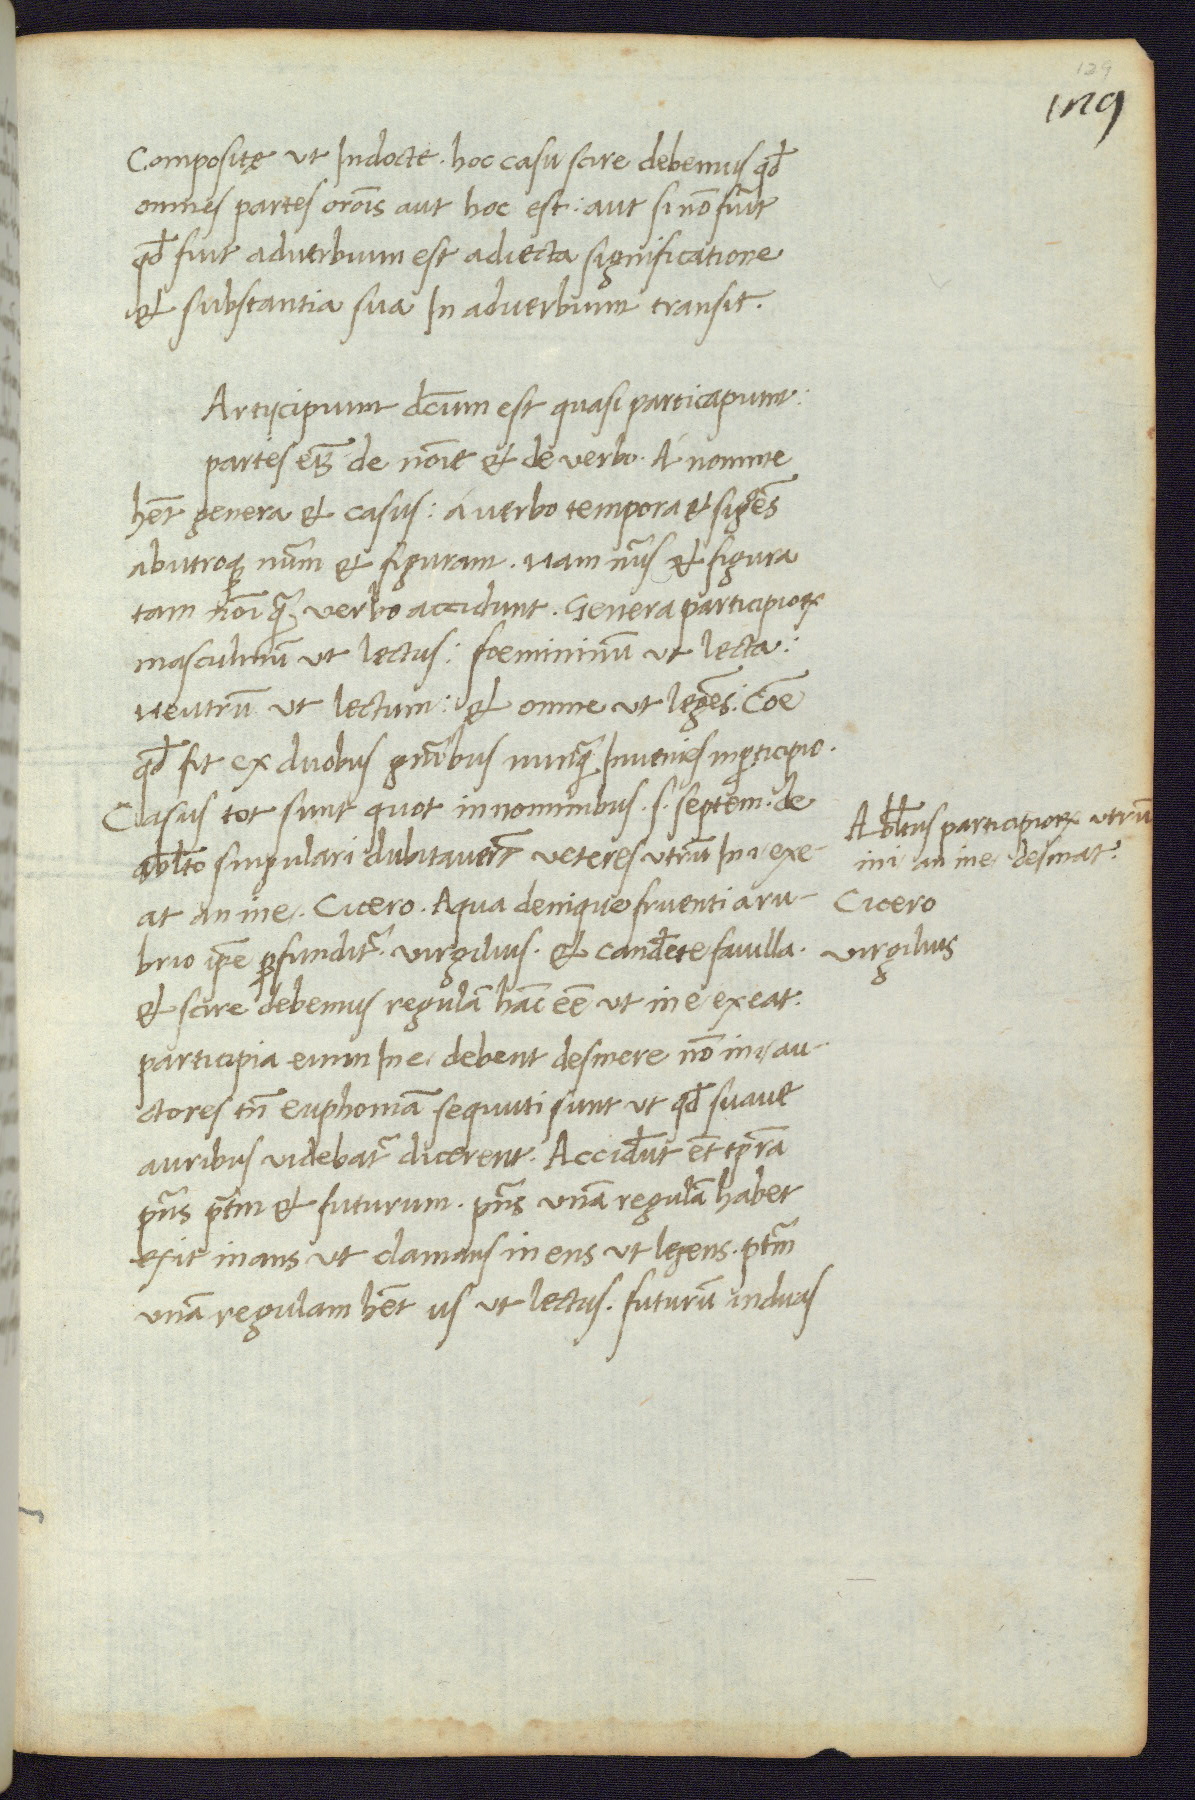 129
129
Compositę ut Indocte. hoc casu scire debemus qd̄
omnes partes oron̄is aut hoc est: aut si nō sūnt
qd̄ fuit aduerbium est adiecta significatione
& substantia sua In aduerbium transit.
Articipium dc̄um est quasi particapium:
partes em̄ de noīe & de verbo. A nomine
hēt genera & casus: a uerbo tempora & sig̃es
ab utroq; num̄ & figuram. nam nūs & figura
tam noī q̃ verbo accidunt. Genera participioꝝ
masculinū ut lectus: foemininū ut lecta:
neutrū ut lectum: & omne ut legēs. Cōe
qd̄ fit ex duobus gn̄ibus nunq̃ Inuenies in ꝑticipio.
Casus tot sunt quot in nominibus. s. septem. de
abl̄to singulari dubitauerūt ueteres utrū In i exe-
at an in e. Cicero. Aqua denique feruenti a ru-
brio ip̄e ꝑfundit᷑. uirgilius. & candēte fauilla.
& scire debemus regulā hāc eē ut in e exeat.
participia enim In e debent desinere nō in i au-
ctores tn̄ euphoniā sequuti sunt ut qd̄ suaue
auribus uidebat᷑ dicerent. Accidūt et̄ tp̄ra
pn̄s pt̄m & futurum. pn̄s unā regulā habet
exit in ans ut clamans in ens ut legens. pt̄m
unā regulam hēt us ut lectus. futurū in duas
Abl̄tus participioꝝ utrū
in i an in e desinat.
Cicero
uirgilius